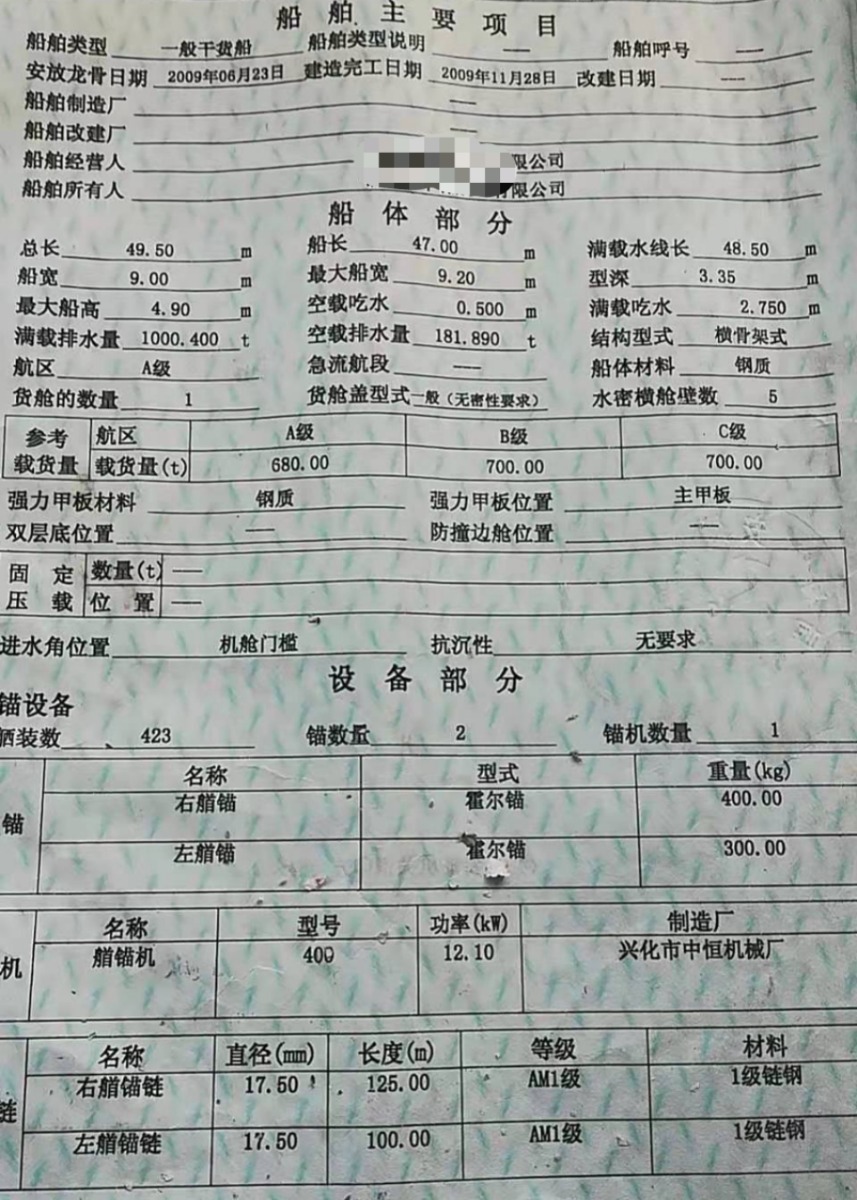 船舶主要项目
船舶类型 一般干货船 船舶类型说明 —— 船舶呼号 ——
安放龙骨日期 2009年06月23日 建造完工日期 2009年11月28日 改建日期 ——
船舶制造厂 ——
船舶改建厂 ——
船舶经营人 限公司
船舶所有人 有限公司
船体部分
总长 49.50 m 船长 47.00 m 满载水线长 48.50 m
船宽 9.00 m 最大船宽 9.20 m 型深 3.35 m
最大船高 4.90 m 空载吃水 0.500 m 满载吃水 2.750 m
满载排水量 1000.400 t 空载排水量 181.890 t 结构型式 横骨架式
航区 A级 急流航段 —— 船体材料 钢质
货舱的数量 1 货舱盖型式 一般(无密性要求) 水密横舱壁数 5
参考 航区 A级 B级 C级
载货量 载货量(t) 680.00 700.00 700.00
强力甲板材料 钢质 强力甲板位置 主甲板
双层底位置 —— 防撞边舱位置 ——
固定 数量(t) ——
压载 位置 ——
进水角位置 机舱门槛 抗沉性 无要求
设备部分
锚设备
舾装数 423 锚数量 2 锚机数量 1
名称 型式 重量(kg)
锚 右艏锚 霍尔锚 400.00
左艏锚 霍尔锚 300.00
名称 型号 功率(kW) 制造厂
机 艏锚机 400 12.10 兴化市中恒机械厂
名称 直径(mm) 长度(m) 等级 材料
链 右艏锚链 17.50 125.00 AM1级 1级链钢
左艏锚链 17.50 100.00 AM1级 1级链钢